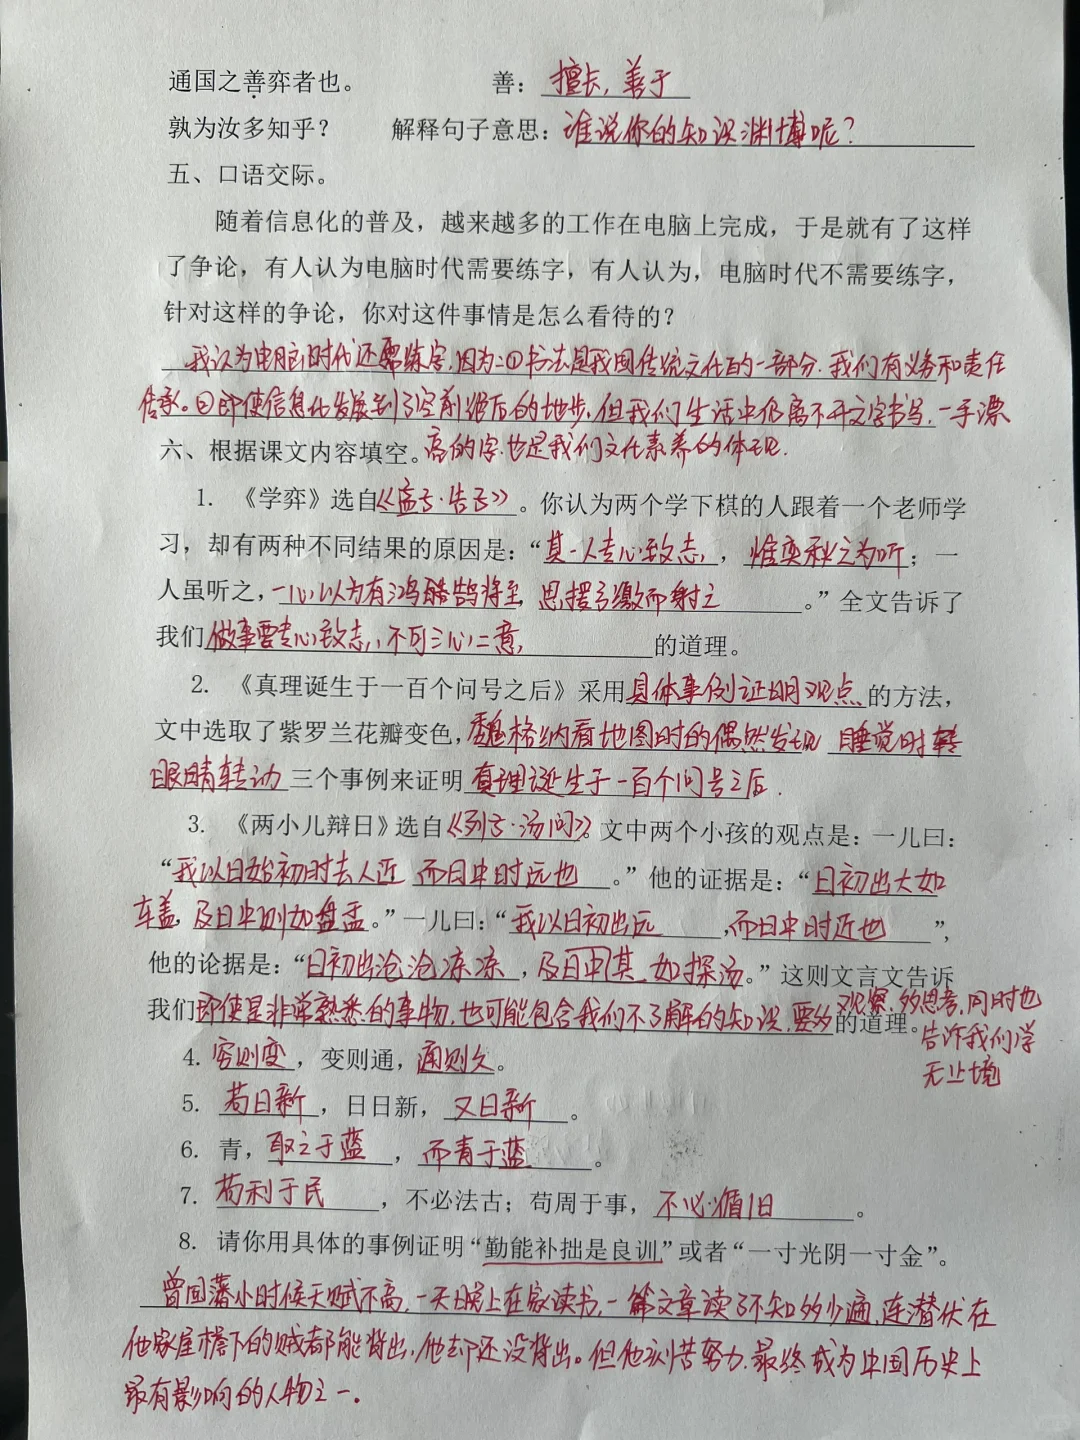 通国之善弈者也。 善：擅长，善于
孰为汝多知乎？ 解释句子意思：谁说你的知识渊博呢？
五、口语交际。
随着信息化的普及，越来越多的工作在电脑上完成，于是就有了这样
了争论，有人认为电脑时代需要练字，有人认为，电脑时代不需要练字，
针对这样的争论，你对这件事情是怎么看待的？
我认为电脑时代还需练字，因为：①书法是我国传统文化的一部分，我们有义务和责任
传承。②即使信息化发展到了空前绝后的地步，但我们生活中仍离不开文字书写，一手漂
亮的字也是我们文化素养的体现.
六、根据课文内容填空。
1. 《学弈》选自《孟子·告子》。你认为两个学下棋的人跟着一个老师学
习，却有两种不同结果的原因是：“其一人专心致志，惟弈秋之为听；一
人虽听之，一心以为有鸿鹄将至，思援弓缴而射之。”全文告诉了
我们做事要专心致志，不可三心二意，的道理。
2. 《真理诞生于一百个问号之后》采用具体事例证明观点的方法，
文中选取了紫罗兰花瓣变色，魏格纳看地图时的偶然发现 睡觉时转
眼睛转动三个事例来证明真理诞生于一百个问号之后.
3. 《两小儿辩日》选自《列子·汤问》。文中两个小孩的观点是：一儿曰：
“我以日始初时去人近 而日中时远也。”他的证据是：“日初出大如
车盖，及日中则如盘盂。”一儿曰：“我以日初出远，而日中时近也”，
他的论据是：“日初出沧沧凉凉，及日中其如探汤。”这则文言文告诉
我们即使是非常熟悉的事物，也可能包含我们不了解的知识，要多观察，多思考，同时也
告诉我们学
无止境的道理。
4. 穷则变，变则通，通则久。
5. 苟日新，日日新，又日新。
6. 青，取之于蓝，而青于蓝。
7. 苟利于民，不必法古；苟周于事，不必循旧。
8. 请你用具体的事例证明“勤能补拙是良训”或者“一寸光阴一寸金”。
曾国藩小时候天赋不高，一天晚上在家读书，一篇文章读了不知多少遍，连潜伏在
他家屋檐下的贼都能背出，他却还没背出。但他刻苦努力，最终成为中国历史上
最有影响的人物之一。